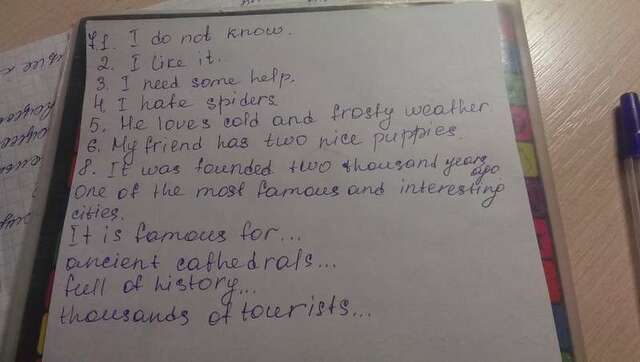 71. I do not know.
2. I like it.
3. I need some help.
4. I hate spiders
5. He loves cold and frosty weather.
6. My friend has two nice puppies.
8. It was founded two thousand years ago
One of the most famous and interesting
cities.
It is famous for...
ancient cathedrals...
full of history...
thousands of tourists...